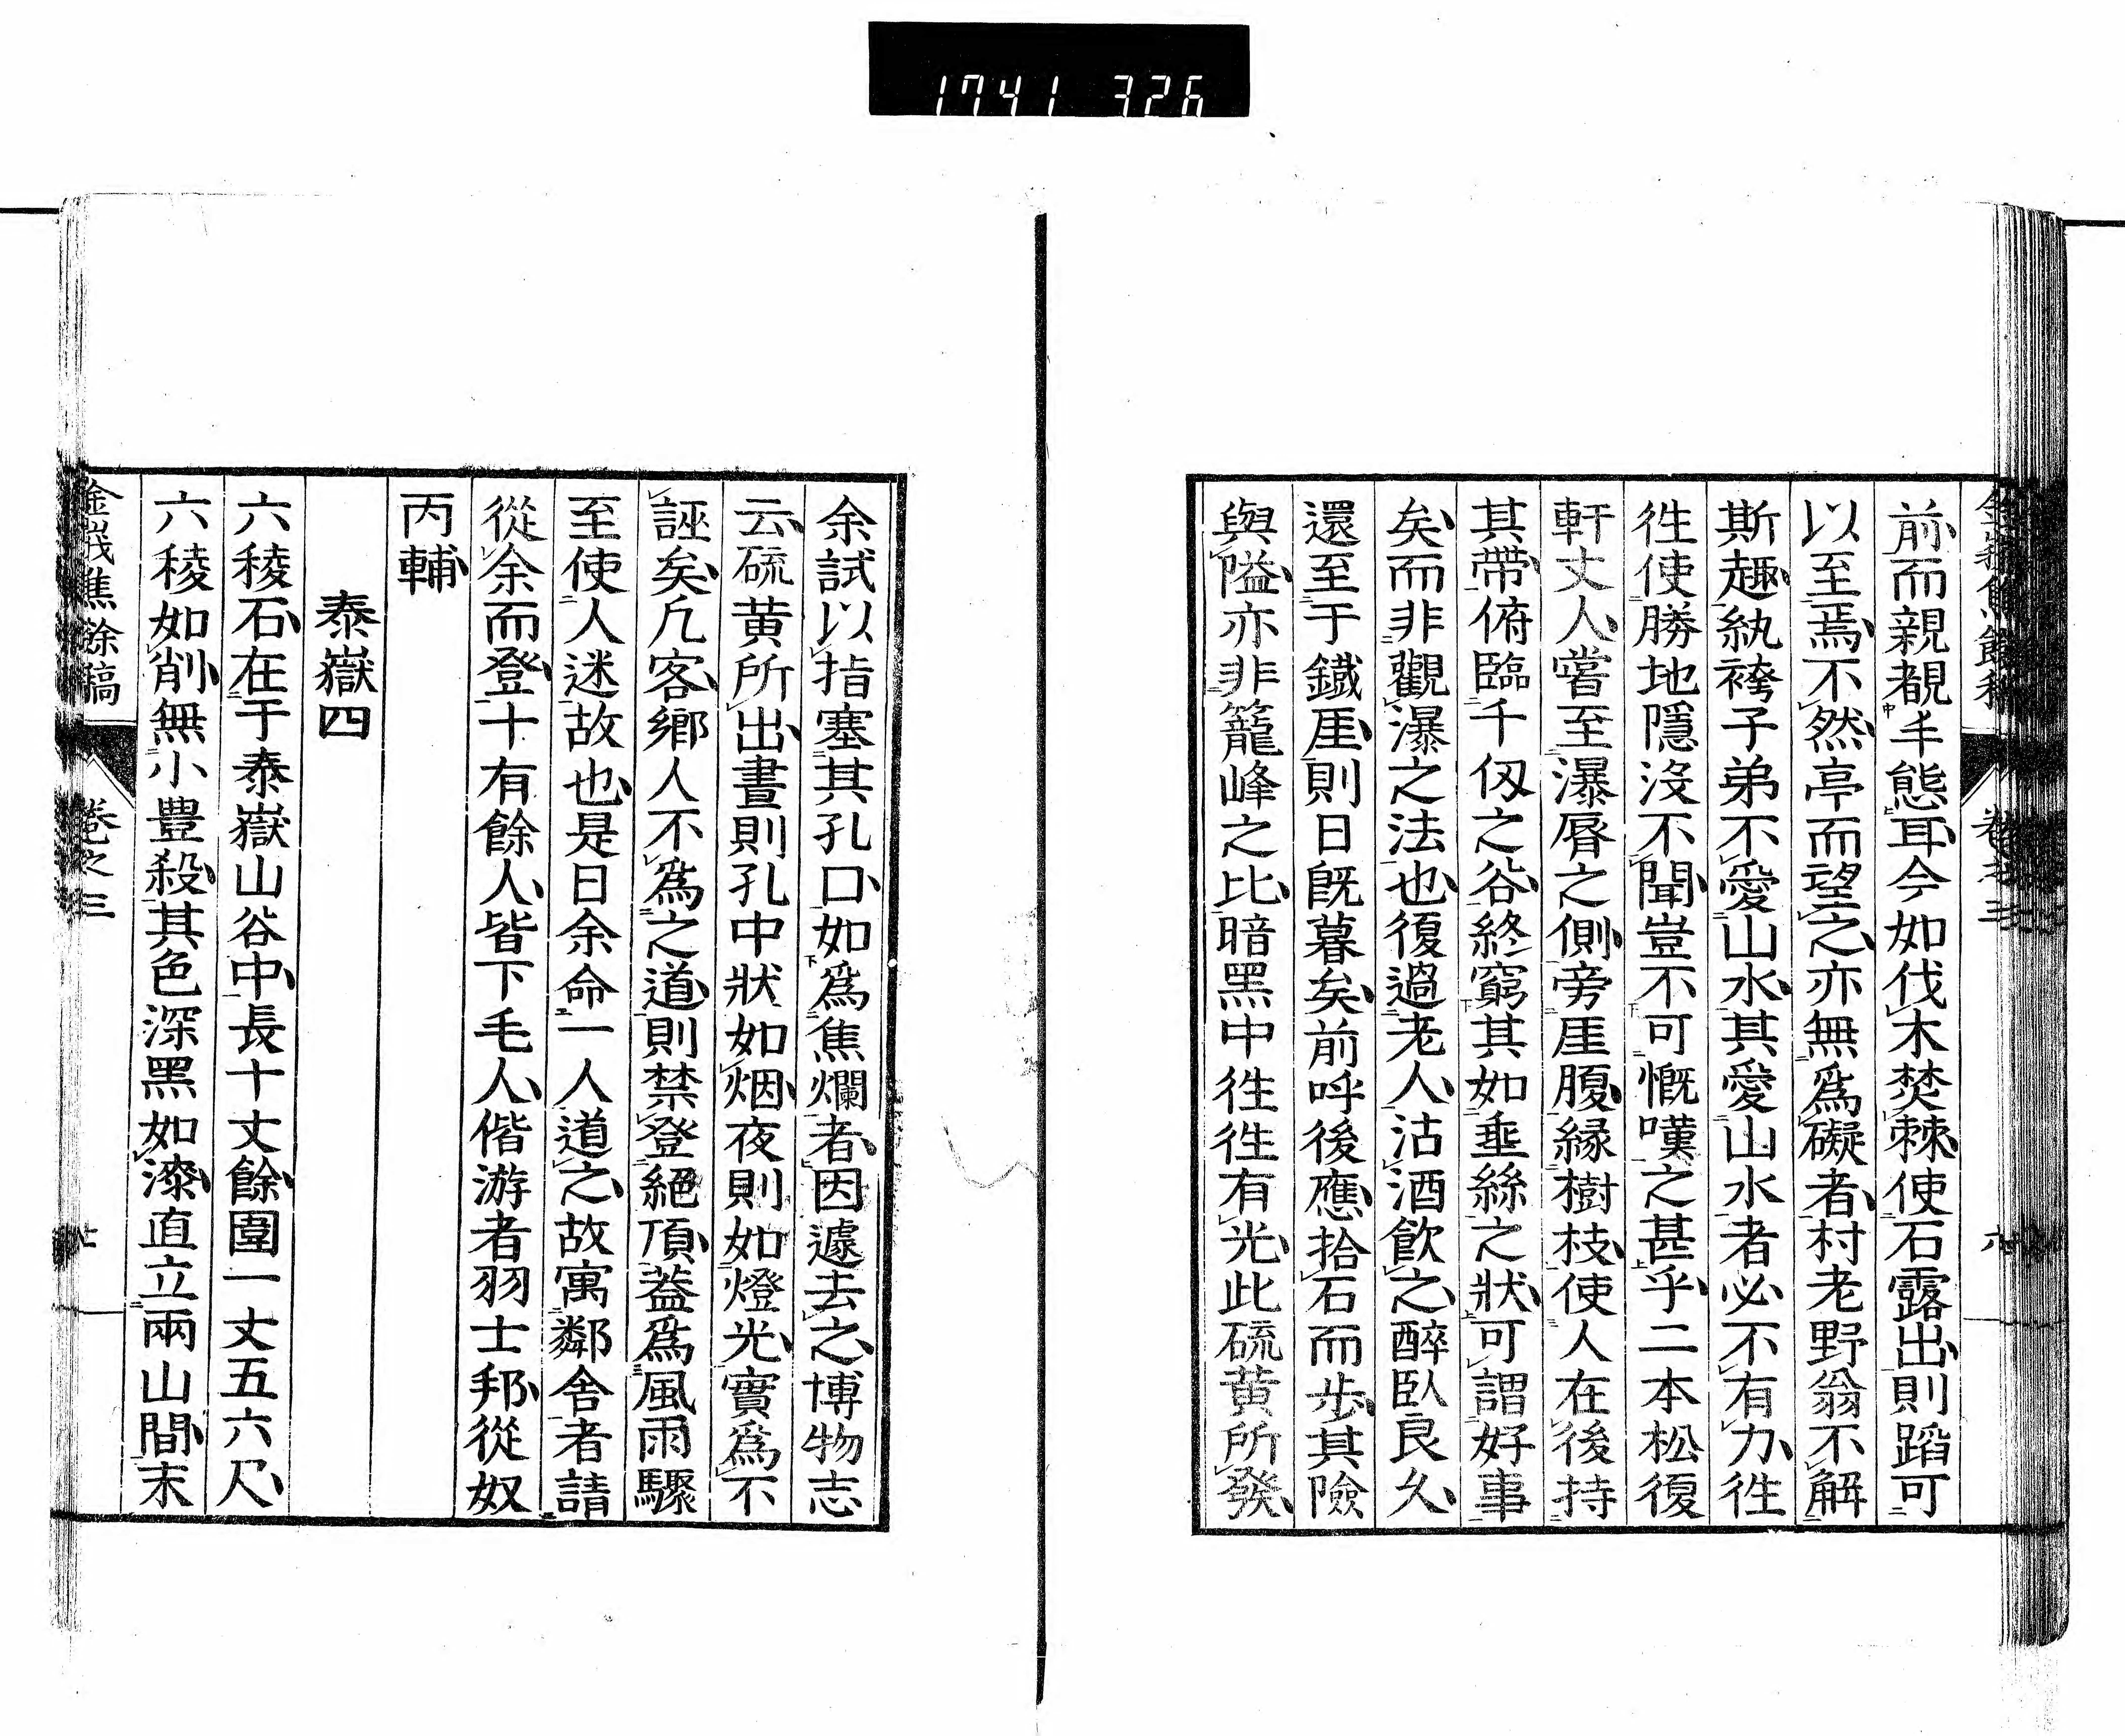 1741 326
前而親覩手態耳今如伐木焚棘使石露出則蹈可
以至焉不然亭而望之亦無爲礙者村老野翁不解
斯趣紈袴子弟不愛山水其愛山水者必不有力徃
徃使勝地隱沒不聞豈不可慨嘆之甚乎二本松復
軒丈人嘗至瀑脣之側旁厓腹緣樹枝使人在後持
其帶俯臨千仭之谷終窮其如埀絲之狀可謂好事
矣而非觀瀑之法也復過老人沽酒飮之醉臥良久
還至于鐵厓則日旣暮矣前呼後應拾石而步其險
與隘亦非籠峰之比暗黑中徃徃有光此硫黄所發
余試以指塞其孔口如爲焦爛者因遽去之博物志
云硫黄所出晝則孔中狀如烟夜則如燈光實爲不
誣矣凢客鄉人不爲之道則禁登絕頂葢爲風雨驟
至使人迷故也是日余命一人道之故寓鄰舍者請
從余而登十有餘人皆下毛人偕游者羽士邦從奴
丙輔
泰嶽四
六稜石在于泰嶽山谷中長十丈餘圍一丈五六尺
六稜如削無小豊殺其色深黑如漆直立兩山間末
金峩焦餘稿 卷之三 七